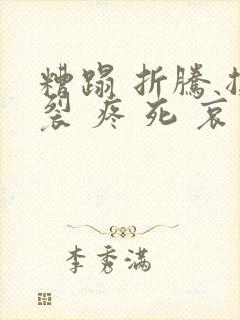 糟蹋 折騰
裂 疼 死 哀
李秀滿